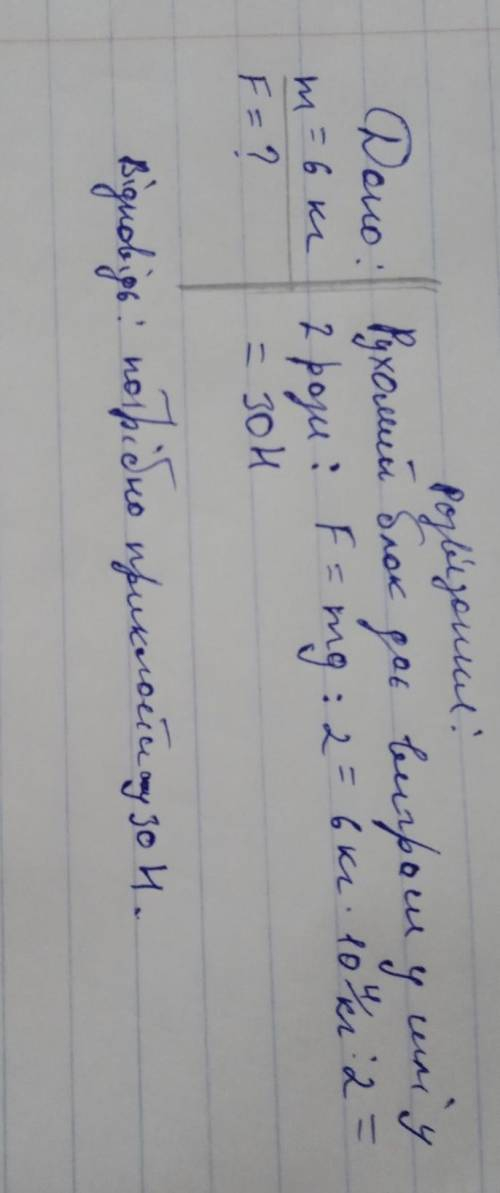 Розв'язання:
Дано:
m = 6 кг
F = ?
Рухомий блок дає виграш у силі у
2 рази: F = mg : 2 = 6 кг · 10 Н/кг : 2 =
= 30 Н
Відповідь: потрібно прикласти 30 Н.